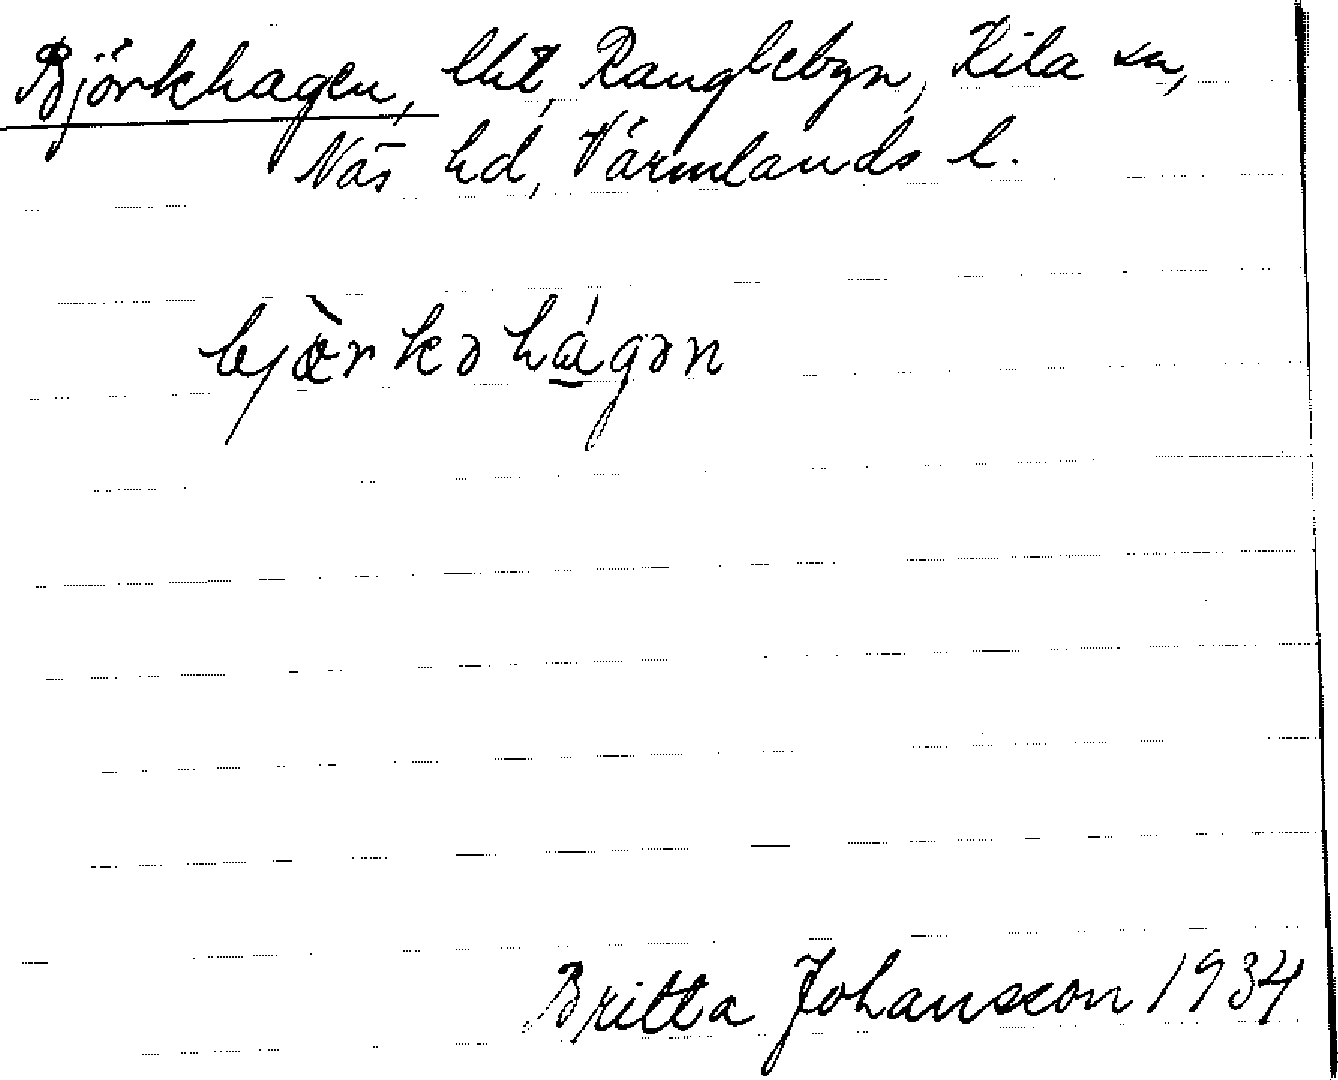 Björkhagen, lht, Ranglebyn, Kila sn,
Näs hd, Värmlands l.
bjæ̀rkəhá̱gən
Britta Johansson 1934